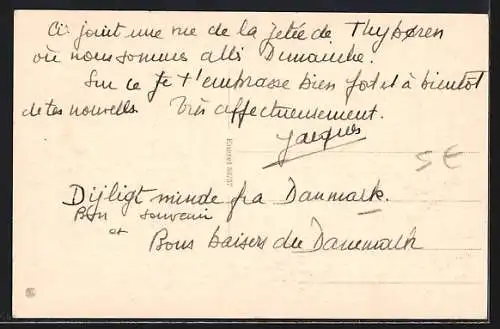 Ci joint une vue de la jetée de Thyborøn
où nous sommes allés Dimanche.
Sur ce je t'embrasse bien fort et à bientôt
de tes nouvelles. Très affectueusement.
Jacques
5 €
Eneret 36/37
Dijligt minde fra Danmark.
Bon souvenir
et
Bons baisers du Danemark